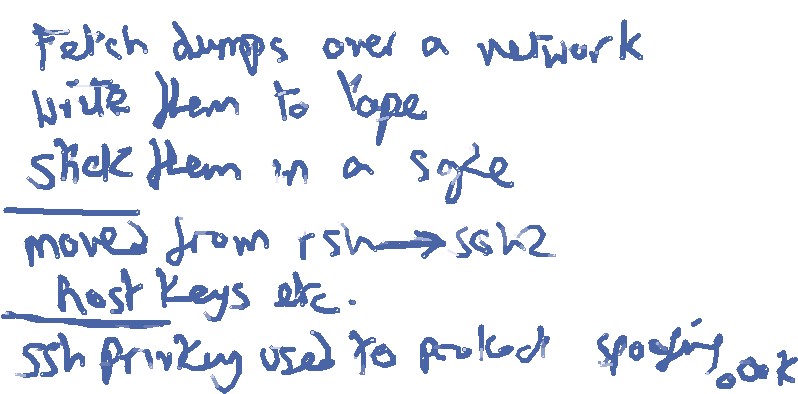 Fetch dumps over a network
write them to tape
stick them in a safe
moved from rsh → ssh2
host keys etc.
ssh privkey used to protect spoofing